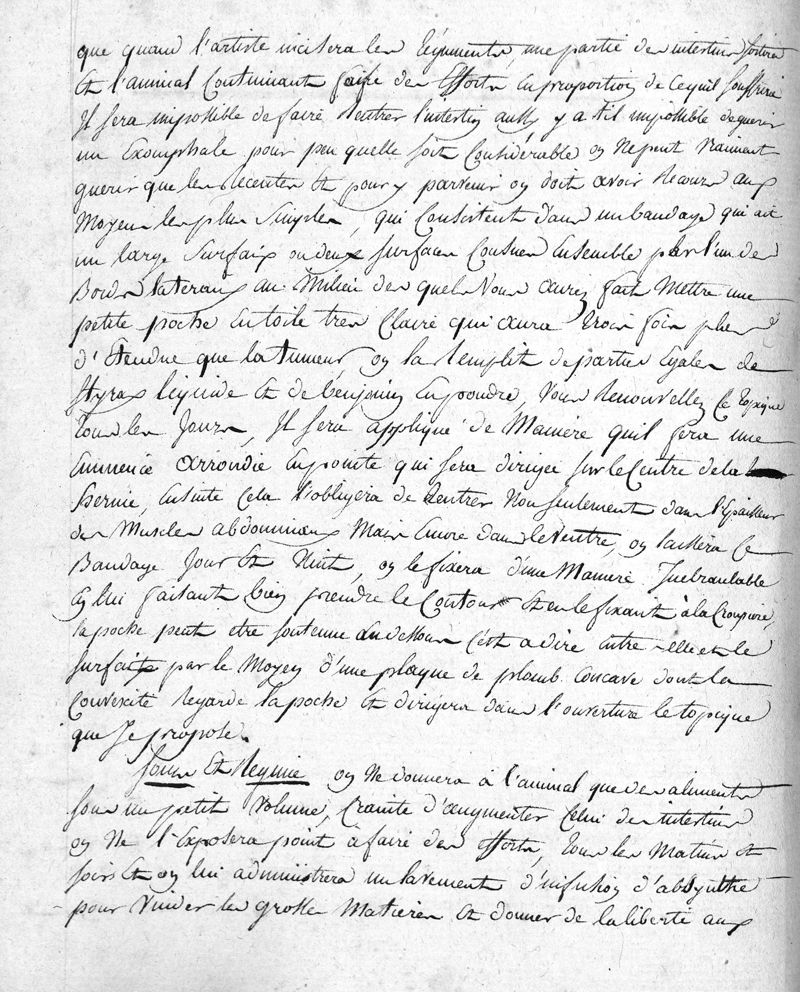 que quand l'artiste incisera les téguments, une partie des intestins sortira
et l'animal continuant faire des Efforts en proportion de ce quil souffrira
Il sera impossible de faire Rentrer l'intestin aussy y a til impossible de guerir
un Exomphale pour peu quelle soit Considérable on Ne peut vraiment
guerir que les recentes et pour y parvenir on doit avoir Recours aux
Moyens les plus Simples, qui Consistent dans un bandage qui ait
un large Surfaix ou deux surfaces Cousues Ensemble par l'un des
Bords lateraux au Milieu des quels Vous aurez fait Mettre une
petite poche en toile tres Claire qui aura trois fois plus
d'Etendue que la tumeur, on la Remplit de parties Egales de
Styrax liquide et de benjoin En poudre, Vous Renouvellez Ce topique
tous les Jours, Il sera appliqué de Maniere quil fera une
Eminence arrondie en pointe qui sera dirigée sur le Centre de la
hernie, Ensuite Cela l'obligera de Rentrer Non seulement dans l'Epaisseur
des Muscles abdominaux Mais Encore dans le Ventre, on laissera Ce
Bandage Jour et Nuit, on le fixera d'une Maniere Inebranlable
En lui faisant bien prendre le Contour et en le fixant à la Croupiere,
la poche peut etre soutenue au dessous C'est a dire entre elle et le
surfaix par le Moyen d'une plaque de plomb Concave dont la
Convexité Regarde la poche et dirigera dans l'ouverture le topique
que Je propose.
Soins et Regime on Ne donnera à l'animal que des aliments
sous un petit Volume, Crainte d'augmenter Celui des intestins
on Ne l'Exposera point à faire des efforts, tous les Matins et
soirs et on lui administrera un lavement d'infusion d'absynthe
pour Vuider les grosses Matieres et donner de la liberté aux